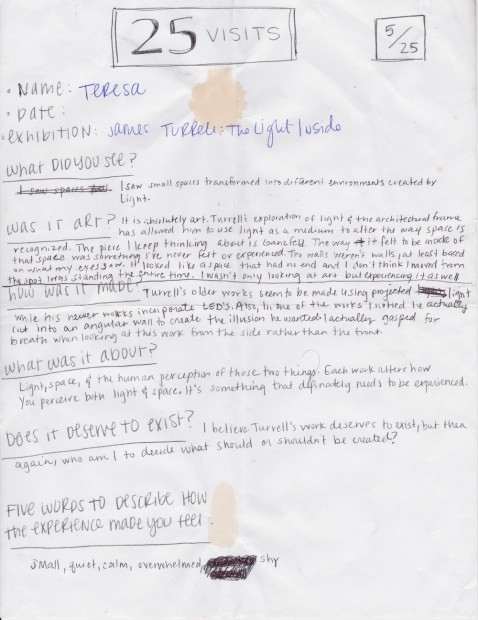 25 VISITS
5/25
• NAME: Teresa
• DATE:
• EXHIBITION: James Turrell: The Light Inside
What DID YOU See?
I saw small spaces transformed into different environments created by
Light.
WAS IT ART? It is absolutely art. Turrell's exploration of light & the architectural frame
has allowed him to use light as a medium to alter the way space is
recognized. The piece I keep thinking about is Ganzfeld. The way it felt to be inside of
that space was something I've never felt or experienced. The walls weren't walls, at least based
on what my eyes saw. It looked like a space that had no end and I don't think I moved from
the spot I was standing the entire time. I wasn't only looking at art but experiencing it as well
How was it made? Turrell's older works seem to be made using projected light
while his newer works incorporate LED's. Also, in one of the works I noticed he actually
cut into an angular wall to create the illusion he wanted. I actually gasped for
breath when looking at this work from the side rather than the front.
What was it about?
Light, space, & the human perception of those two things. Each work alters how
You perceive both light & space. It's something that definately needs to be experienced.
Does it deserve to exist? I believe Turrell's work deserves to exist, but then
again, who am I to decide what should or shouldn't be created?
FIVE WORDS TO DESCRIBE HOW
the experience made you feel.
small, quiet, calm, overwhelmed, shy